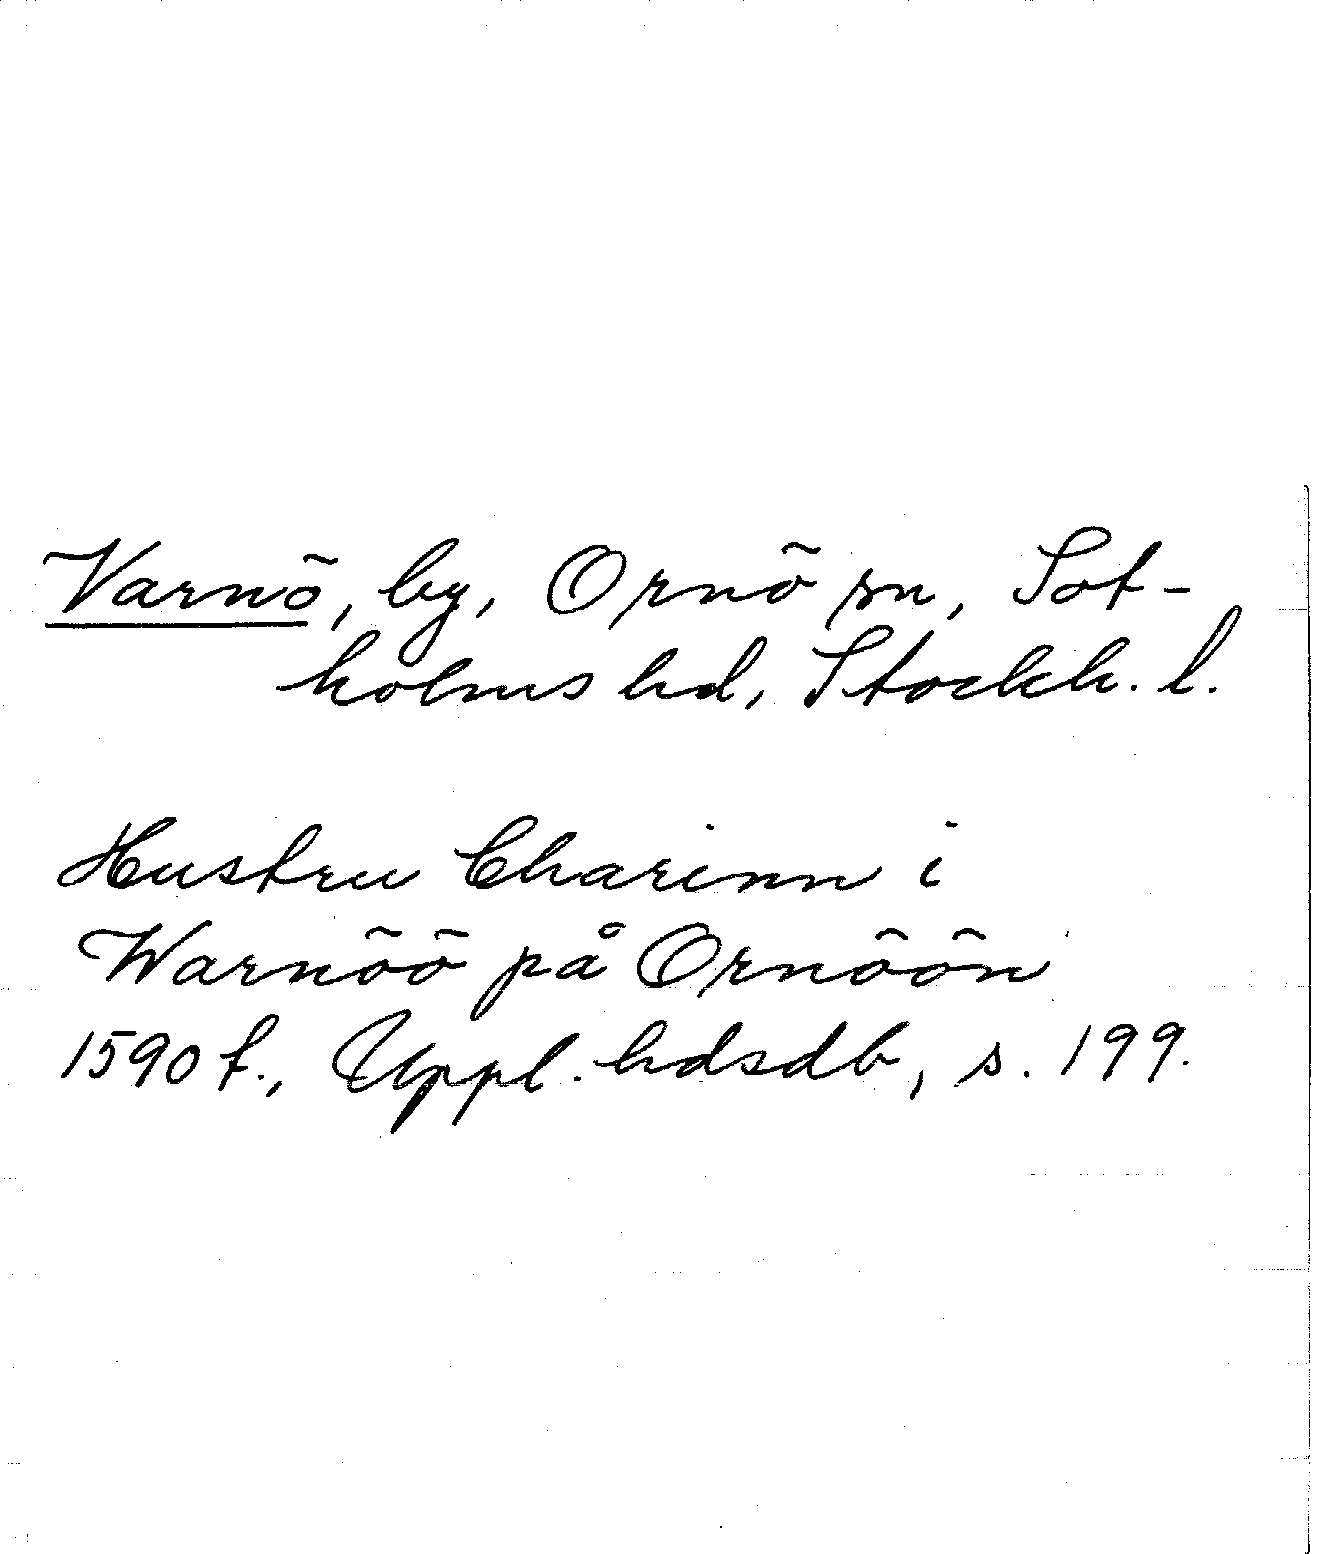 Varnö, by, Ornö sn, Sot-
holms hd, Stockh. l.
Hustru Charinn i
Warnöö på Ornöön
1590 t., Uppl. hdsdb, s. 199.